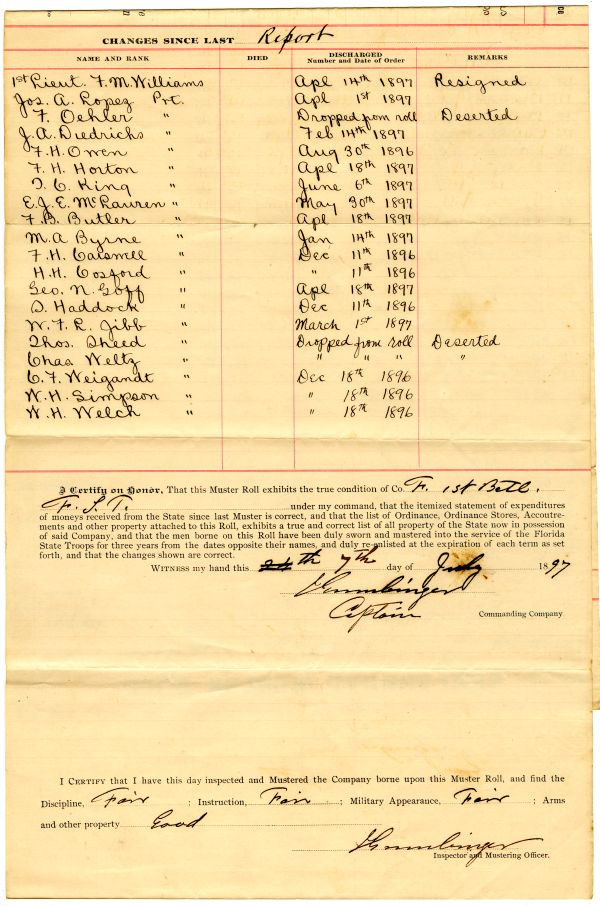 CHANGES SINCE LAST Report
NAME AND RANK DIED DISCHARGED Number and Date of Order REMARKS
1st Lieut. F. M. Williams Apl 14th 1897 Resigned
Jos. A. Lopez Prt. Apl 1st 1897
F. Oehler " Dropped from roll Deserted
J. A. Diedrichs " Feb 14th 1897
F. H. Owen " Aug 30th 1896
F. H. Horton " Apl 18th 1897
T. C. King " June 6th 1897
E. J. E. McLauren " May 30th 1897
F. B. Butler " Apl 18th 1897
M. A Byrne " Jan 14th 1897
F. H. Caiswell " Dec 11th 1896
H. H. Cosford " " 11th 1896
Geo. N. Goff " Apl 18th 1897
D. Haddock " Dec 11th 1896
W. F. R. Jibb " March 1st 1897
Thos. Sheed " Dropped from roll Deserted
Chas Weltz " " " " "
C. F. Weigandt " Dec 18th 1896
W. H. Simpson " " 18th 1896
W. H. Welch " " 18th 1896
I Certify on Honor, That this Muster Roll exhibits the true condition of Co. F. 1st Batl.
F. S. T. under my command, that the itemized statement of expenditures
of moneys received from the State since last Muster is correct, and that the list of Ordinance, Ordinance Stores, Accoutre-
ments and other property attached to this Roll, exhibits a true and correct list of all property of the State now in possession
of said Company, and that the men borne on this Roll have been duly sworn and mustered into the service of the Florida
State Troops for three years from the dates opposite their names, and duly re-enlisted at the expiration of each term as set
forth, and that the changes shown are correct.
WITNESS my hand this 24th 7th day of July 1897
Captain Commanding Company
I CERTIFY that I have this day inspected and Mustered the Company borne upon this Muster Roll, and find the
Discipline, Fair ; Instruction, Fair ; Military Appearance, Fair ; Arms
and other property Good
Inspector and Mustering Officer.